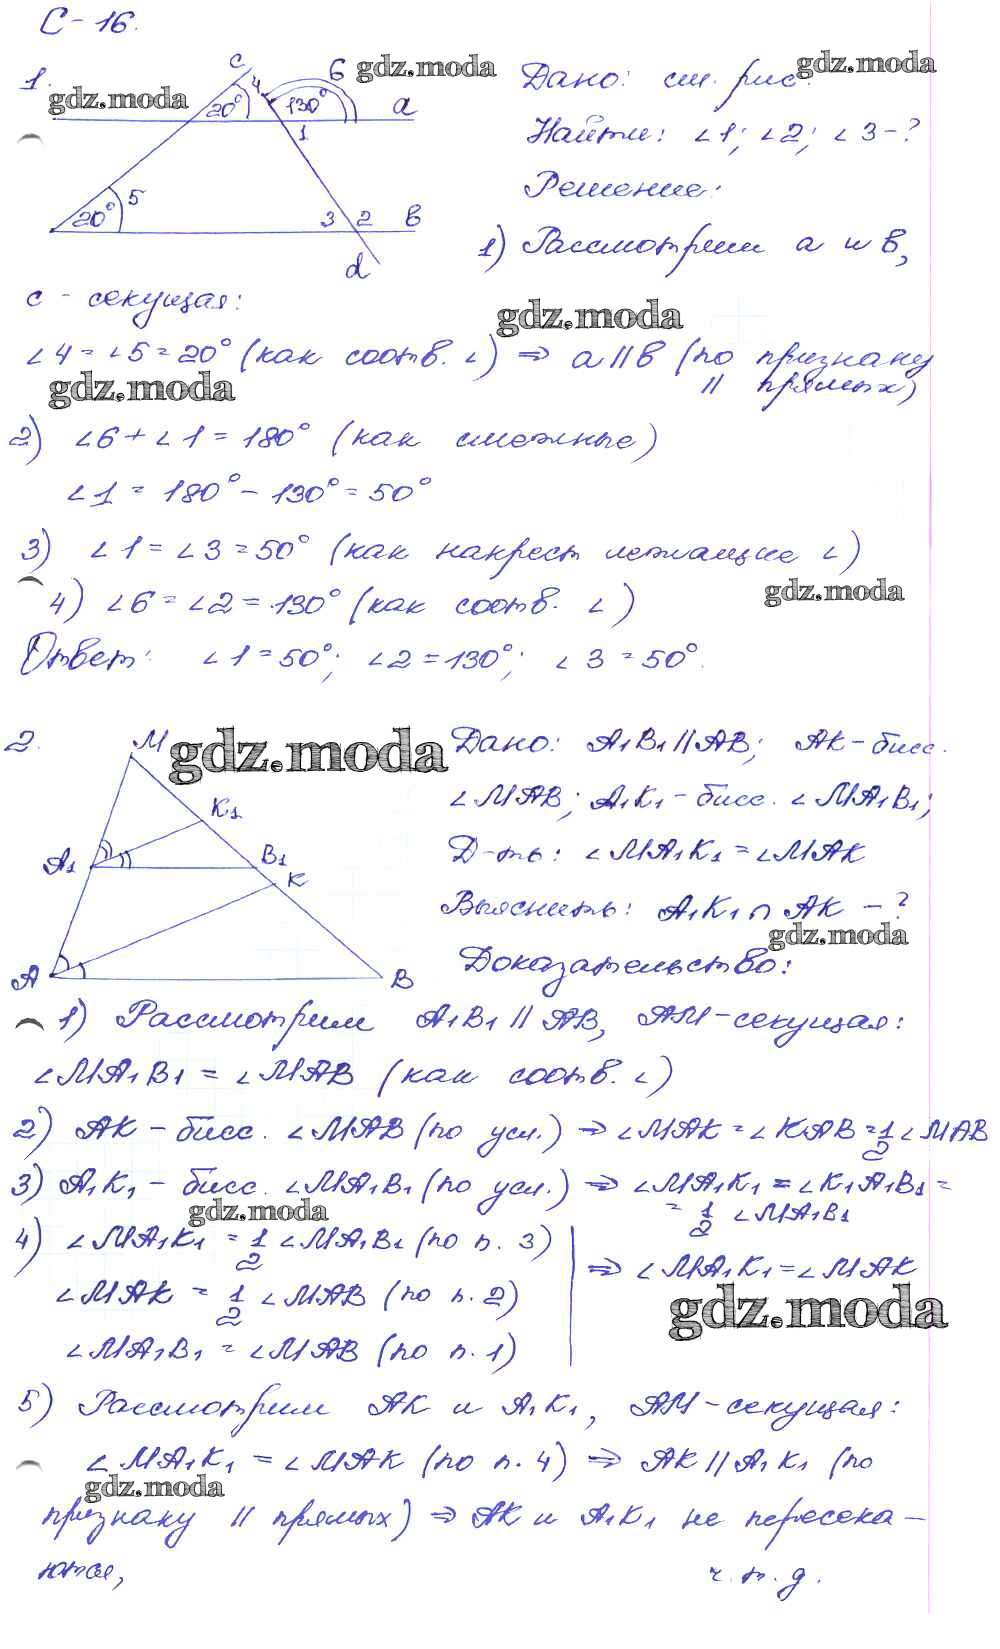 С-16.
1.
c
4
6
20°
130°
a
1
5
20°
3
2
b
d
Дано: см. рис.
Найти: ∠1; ∠2; ∠3-?
Решение:
1) Рассмотрим a и b,
c - секущая:
∠4 = ∠5 = 20° (как соотв. ∠) ⇒ a || b (по признаку
|| прямых)
2) ∠6 + ∠1 = 180° (как смежные)
∠1 = 180° - 130° = 50°
3) ∠1 = ∠3 = 50° (как накрест лежащие ∠)
4) ∠6 = ∠2 = 130° (как соотв. ∠)
Ответ: ∠1 = 50°; ∠2 = 130°; ∠3 = 50°.
2.
M
K₁
A₁
B₁
K
A
B
Дано: A₁B₁ || AB; AK - бисс.
∠MAB; A₁K₁ - бисс. ∠MA₁B₁;
Д-ть: ∠MA₁K₁ = ∠MAK
Выяснить: A₁K₁ ∩ AK - ?
Доказательство:
1) Рассмотрим A₁B₁ || AB, AM - секущая:
∠MA₁B₁ = ∠MAB (как соотв. ∠)
2) AK - бисс. ∠MAB (по усл.) ⇒ ∠MAK = ∠KAB = 1/2 ∠MAB
3) A₁K₁ - бисс. ∠MA₁B₁ (по усл.) ⇒ ∠MA₁K₁ = ∠K₁A₁B₁ =
= 1/2 ∠MA₁B₁
4) ∠MA₁K₁ = 1/2 ∠MA₁B₁ (по п. 3)
∠MAK = 1/2 ∠MAB (по п. 2)
∠MA₁B₁ = ∠MAB (по п. 1)
⇒ ∠MA₁K₁ = ∠MAK
5) Рассмотрим AK и A₁K₁, AM - секущая:
∠MA₁K₁ = ∠MAK (по п. 4) ⇒ AK || A₁K₁ (по
признаку || прямых) ⇒ AK и A₁K₁ не пересека-
ются,
ч.т.д.
gdz.moda
gdz.moda
gdz.moda
gdz.moda
gdz.moda
gdz.moda
gdz.moda
gdz.moda
gdz.moda
gdz.moda
gdz.moda